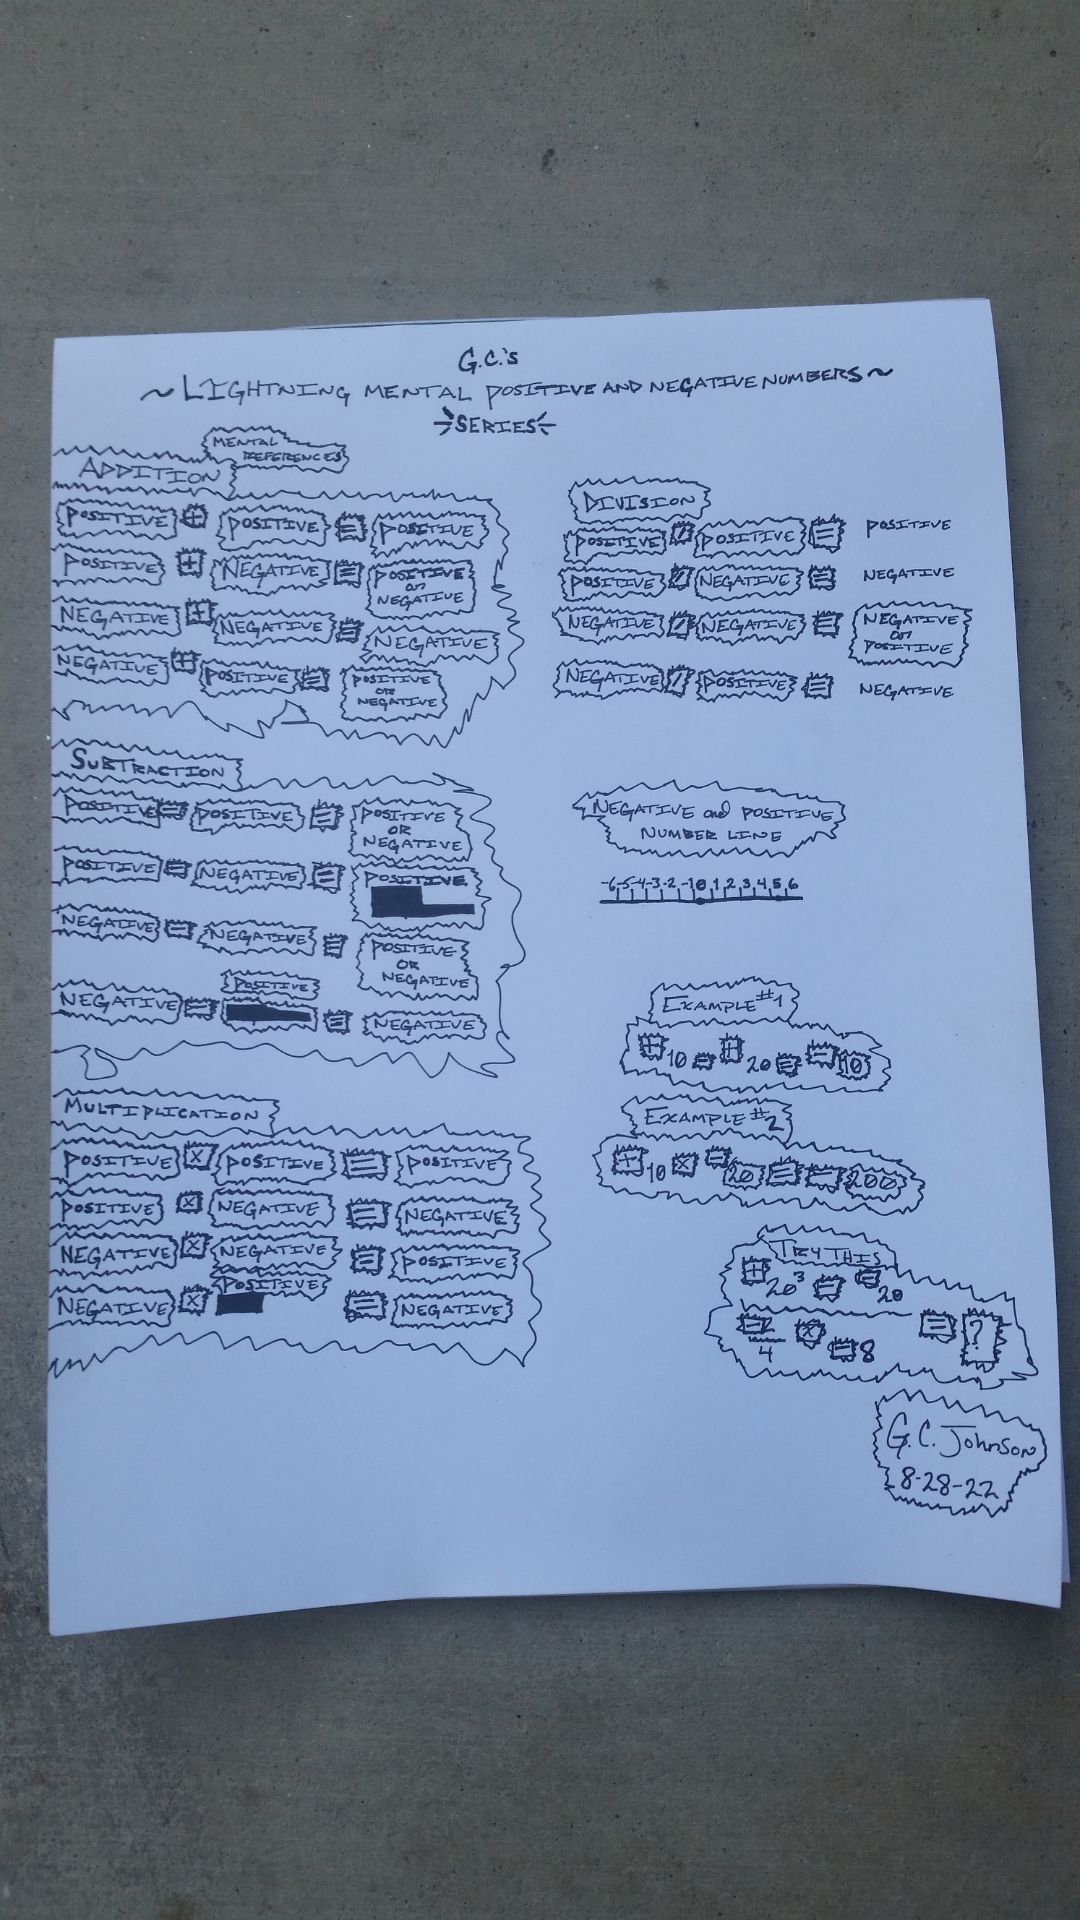 G.C.'s
~LIGHTNING MENTAL POSITIVE AND NEGATIVE NUMBERS~
SERIES
MENTAL
REFERENCES
ADDITION
POSITIVE + POSITIVE = POSITIVE
POSITIVE + NEGATIVE = POSITIVE
OR
NEGATIVE
NEGATIVE + NEGATIVE = NEGATIVE
NEGATIVE + POSITIVE = POSITIVE
OR
NEGATIVE
SUBTRACTION
POSITIVE - POSITIVE = POSITIVE
OR
NEGATIVE
POSITIVE - NEGATIVE = POSITIVE
NEGATIVE - NEGATIVE = POSITIVE
OR
NEGATIVE
POSITIVE
NEGATIVE - = NEGATIVE
MULTIPLICATION
POSITIVE X POSITIVE = POSITIVE
POSITIVE X NEGATIVE = NEGATIVE
NEGATIVE X NEGATIVE = POSITIVE
POSITIVE
NEGATIVE X = NEGATIVE
DIVISION
POSITIVE / POSITIVE = POSITIVE
POSITIVE / NEGATIVE = NEGATIVE
NEGATIVE / NEGATIVE = NEGATIVE
OR
POSITIVE
NEGATIVE / POSITIVE = NEGATIVE
NEGATIVE and POSITIVE
NUMBER LINE
-6 -5 -4 -3 -2 -1 0 1 2 3 4 5 6
EXAMPLE #1
+ 10 - + 20 = - 10
EXAMPLE #2
+ 10 X - 20 = - 200
TRY THIS
+ 20³ - - 20
- 2 X - 8 = ?
4
G.C. Johnson
8-28-22